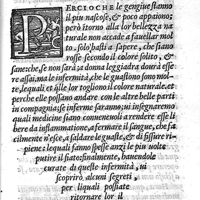 PERCIOCHE le gengiue stanno
il piu nascose, & poco appaiono;
però itorno alla lor bellezza na
turale non accade a fauellar mol
to. solo basti a sapere, che siano
rosse secondo il colore solito, &
sane: che, se non sarà, a donna leggiadra dourà esse
re assai, ma le infermità, che le guastono sono mol
te, lequali et alle lor togliono il colore naturale; et
perche elle possano andare con le altre belle parti
in compagnia; se inferme saranno; ui insegneremo
quali medicine siano conueneuoli a rendere esse libe
re da infiammatione, a fermare il sangue, che fa
cilmente n'esce, a saldare le guaste, & di fissure ri
piene: lequali fanno spesse anzi le piu uolte
putire il fiato; finalmente, hauendole
curate di queste infermità, ui
scoprirò alcuni segreti,
per liquali possiate
ritornar lor il